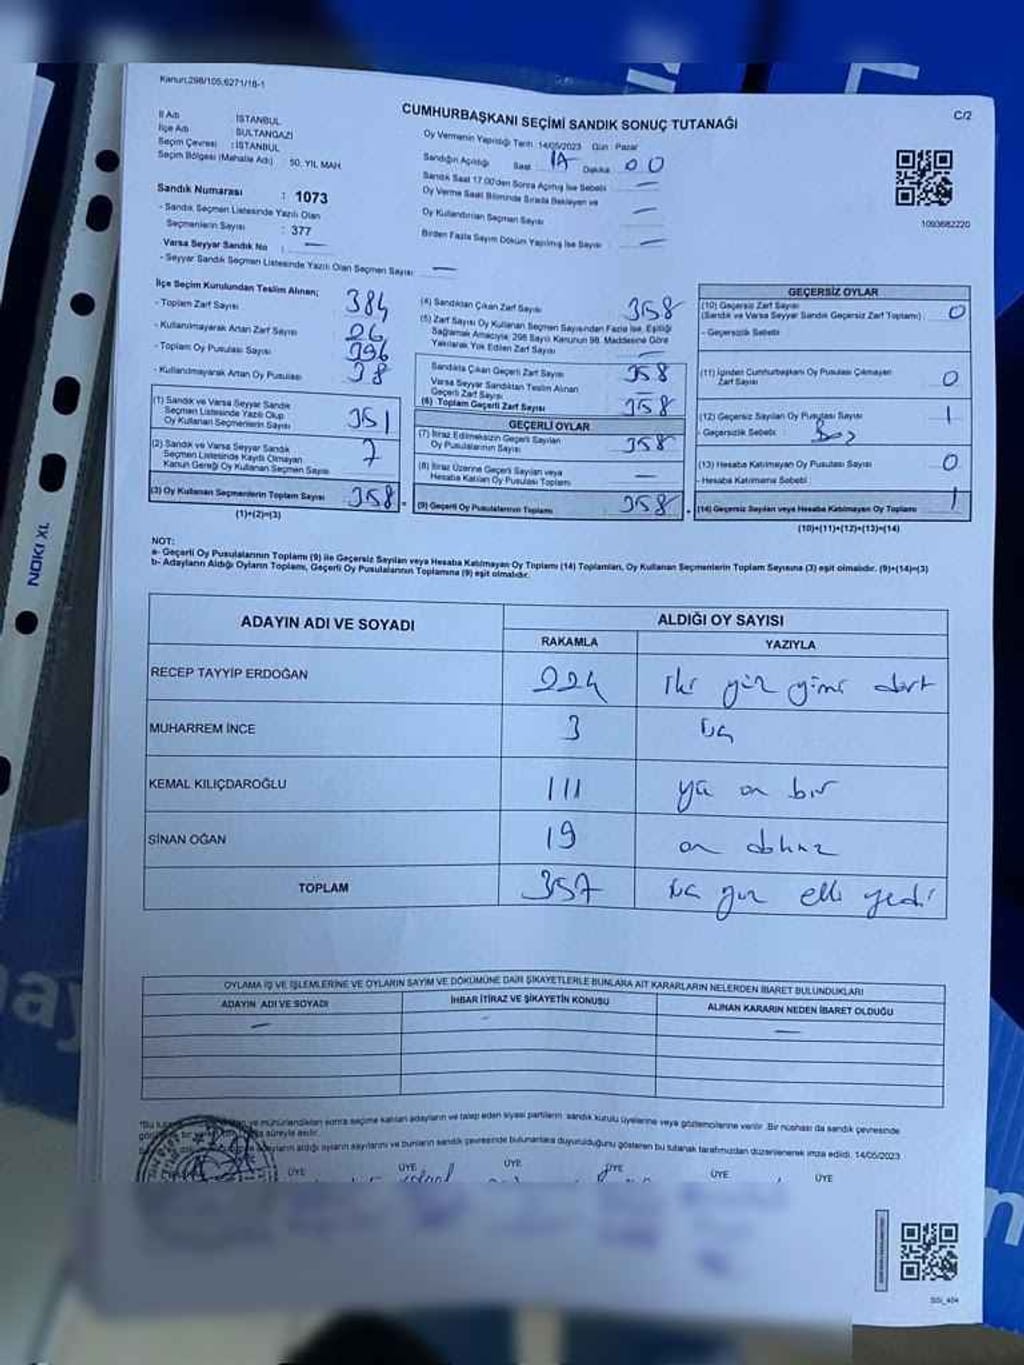 Kanun:298/105,6271/18-1
C/2
CUMHURBAŞKANI SEÇİMİ SANDIK SONUÇ TUTANAĞI
İl Adı : İSTANBUL
İlçe Adı : SULTANGAZİ
Seçim Çevresi : İSTANBUL
Seçim Bölgesi (Mahalle Adı) 50. YIL MAH.
Oy Vermenin Yapıldığı Tarih: 14/05/2023 Gün : Pazar
Sandığın Açıldığı Saat Dakika 00
Sandık Saat 17.00'den Sonra Açılmış İse Sebebi —
Oy Verme Saati Bitiminde Sırada Bekleyen ve
Oy Kullandırılan Seçmen Sayısı —
Birden Fazla Sayım Döküm Yapılmış İse Sayısı —
1093682220
Sandık Numarası : 1073
- Sandık Seçmen Listesinde Yazılı Olan
Seçmenlerin Sayısı : 377
Varsa Seyyar Sandık No : —
- Seyyar Sandık Seçmen Listesinde Yazılı Olan Seçmen Sayısı —
İlçe Seçim Kurulundan Teslim Alınan;
- Toplam Zarf Sayısı 384
- Kullanılmayarak Artan Zarf Sayısı 26
- Toplam Oy Pusulası Sayısı 396
- Kullanılmayarak Artan Oy Pusulası 38
(1) Sandık ve Varsa Seyyar Sandık
Seçmen Listesinde Yazılı Olup
Oy Kullanan Seçmenlerin Sayısı 351
(2) Sandık ve Varsa Seyyar Sandık
Seçmen Listesinde Kayıtlı Olmayan
Kanun Gereği Oy Kullanan Seçmen Sayısı 7
(3) Oy Kullanan Seçmenlerin Toplam Sayısı 358 =
(1)+(2)=(3)
(4) Sandıktan Çıkan Zarf Sayısı 358
(5) Zarf Sayısı Oy Kullanan Seçmen Sayısından Fazla İse, Eşitliği
Sağlamak Amacıyla; 298 Sayılı Kanunun 98. Maddesine Göre
Yakılarak Yok Edilen Zarf Sayısı —
Sandıkta Çıkan Geçerli Zarf Sayısı 358
Varsa Seyyar Sandıktan Teslim Alınan
Geçerli Zarf Sayısı —
(6) Toplam Geçerli Zarf Sayısı 358
GEÇERLİ OYLAR
(7) İtiraz Edilmeksizin Geçerli Sayılan
Oy Pusulalarının Sayısı 358
(8) İtiraz Üzerine Geçerli Sayılan veya
Hesaba Katılan Oy Pusulası Toplamı —
(9) Geçerli Oy Pusulalarının Toplamı 358 +
GEÇERSİZ OYLAR
(10) Geçersiz Zarf Sayısı
(Sandık ve Varsa Seyyar Sandık Geçersiz Zarf Toplamı) 0
- Geçersizlik Sebebi
(11) İçinden Cumhurbaşkanı Oy Pusulası Çıkmayan
Zarf Sayısı 0
(12) Geçersiz Sayılan Oy Pusulası Sayısı 1
- Geçersizlik Sebebi Boş
(13) Hesaba Katılmayan Oy Pusulası Sayısı 0
- Hesaba Katılmama Sebebi
(14) Geçersiz Sayılan veya Hesaba Katılmayan Oy Toplamı 1
(10)+(11)+(12)+(13)=(14)
NOT:
a- Geçerli Oy Pusulalarının Toplamı (9) ile Geçersiz Sayılan veya Hesaba Katılmayan Oy Toplamı (14) Toplamları, Oy Kullanan Seçmenlerin Toplam Sayısına (3) eşit olmalıdır. (9)+(14)=(3)
b- Adayların Aldığı Oyların Toplamı, Geçerli Oy Pusulalarının Toplamına (9) eşit olmalıdır.
ADAYIN ADI VE SOYADI ALDIĞI OY SAYISI
RAKAMLA YAZIYLA
RECEP TAYYİP ERDOĞAN 224 iki yüz yirmi dört
MUHARREM İNCE 3 üç
KEMAL KILIÇDAROĞLU 111 yüz on bir
SİNAN OĞAN 19 on dokuz
TOPLAM 357 üç yüz elli yedi
OYLAMA İŞ VE İŞLEMLERİNE VE OYLARIN SAYIM VE DÖKÜMÜNE DAİR ŞİKAYETLERLE BUNLARA AİT KARARLARIN NELERDEN İBARET BULUNDUKLARI
ADAYIN ADI VE SOYADI İHBAR İTİRAZ VE ŞİKAYETİN KONUSU ALINAN KARARIN NEDEN İBARET OLDUĞU
— — —
*Bu ve mühürlendikten sonra seçime katılan adayların ve talep eden siyasi partilerin sandık kurulu üyelerine veya gözlemcilerine verilir .Bir nüshası da sandık çevresinde
süreyle asılır.
adayların aldığı oyların sayılarını ve bunların sandık çevresinde bulunanlara duyurulduğunu gösteren bu tutanak tarafımızdan düzenlenerek imza edildi. 14/05/2023
ÜYE ÜYE ÜYE ÜYE ÜYE ÜYE
NOKI XL